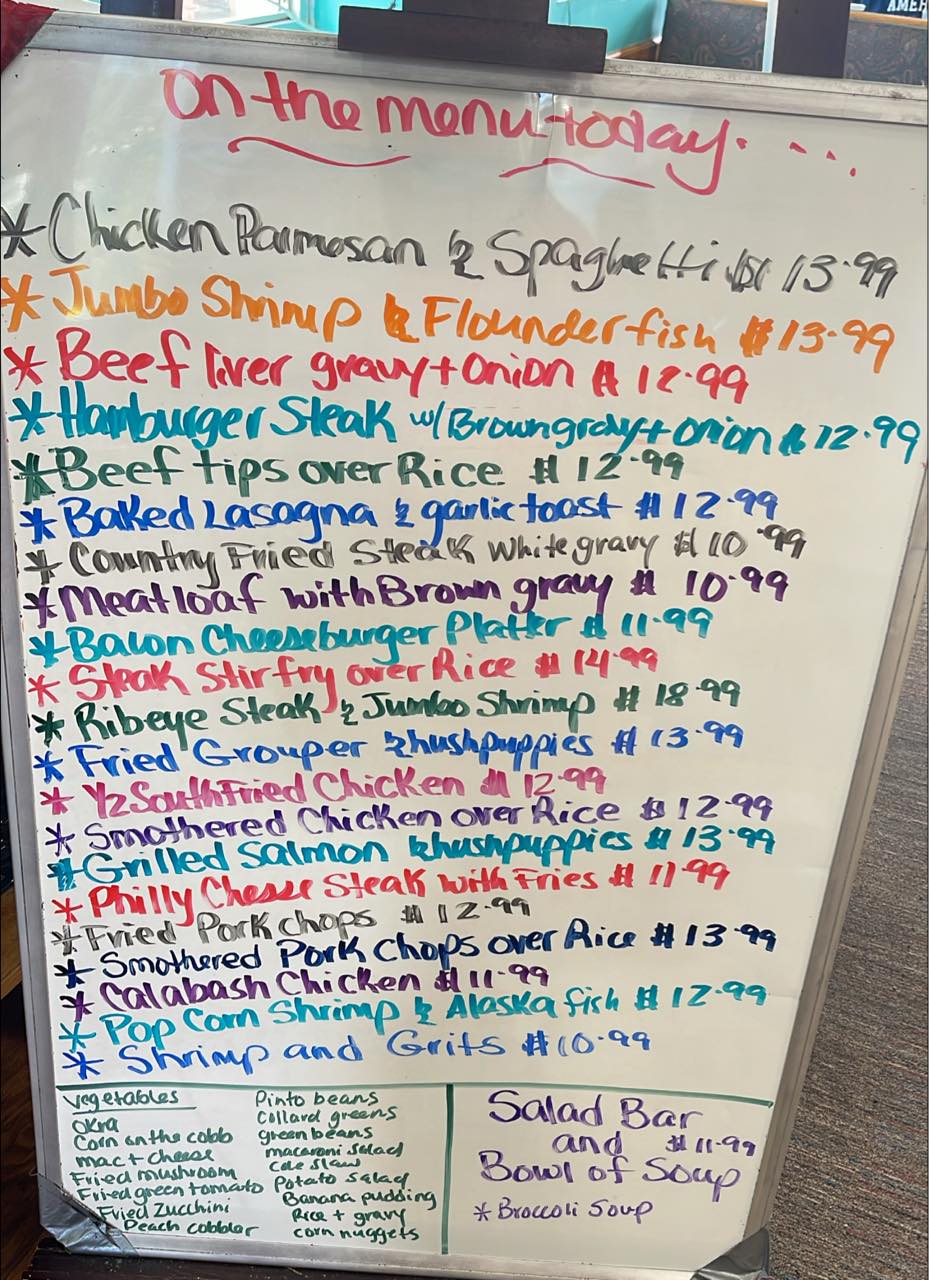 AMER
On the menu today...
* Chicken Parmesan & Spaghetti $13.99
* Jumbo Shrimp & Flounder fish $13.99
* Beef liver gravy + onion $12.99
* Hamburger Steak w/Brown gravy + onion $12.99
* Beef tips over Rice $12.99
* Baked Lasagna & garlic toast $12.99
* Country Fried Steak White gravy $10.99
* Meatloaf with Brown gravy $10.99
* Bacon Cheeseburger Platter $11.99
* Steak Stir fry over Rice $14.99
* Ribeye Steak & Jumbo Shrimp $18.99
* Fried Grouper & hushpuppies $13.99
* 1/2 South Fried Chicken $12.99
* Smothered Chicken over Rice $12.99
* Grilled Salmon & hushpuppies $13.99
* Philly Cheese Steak with Fries $11.99
* Fried Pork chops $12.99
* Smothered Pork Chops over Rice $13.99
* Calabash Chicken $11.99
* Pop Corn Shrimp & Alaska fish $12.99
* Shrimp and Grits $10.99
Vegetables
Okra
Corn on the cobb
mac + cheese
Fried mushroom
Fried green tomato
Fried Zucchini
Peach cobbler
Pinto beans
Collard greens
green beans
macaroni salad
cole slaw
Potato salad
Banana pudding
Rice + gravy
corn nuggets
Salad Bar
and $11.99
Bowl of Soup
* Broccoli Soup